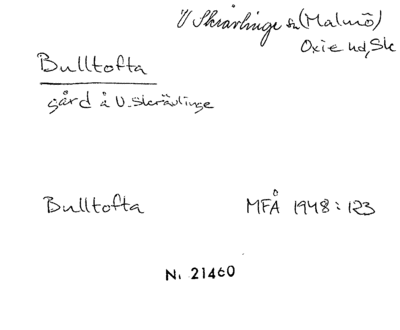 V Skrävlinge sn (Malmö)
Oxie hd, Sk
Bulltofta
gård å V. Skrävlinge
Bulltofta MFÅ 1948: 123
N: 21460